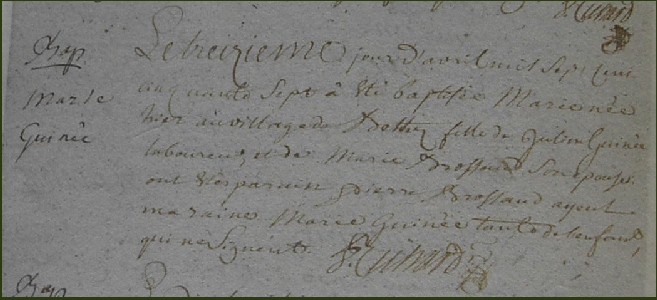 Guinard
Bap.
Marie
Guinée
Le treizieme jour d'avril mil Sept cent
cinquante Sept à été baptisée Marie née
hier au village de fille de Julien Guinée
laboureur, et de Marie Brossaud Son epouse.
ont été parain pierre Brossaud ayeul
maraine Marie Guinée tante de l'enfant,
qui ne Signent.
Bap